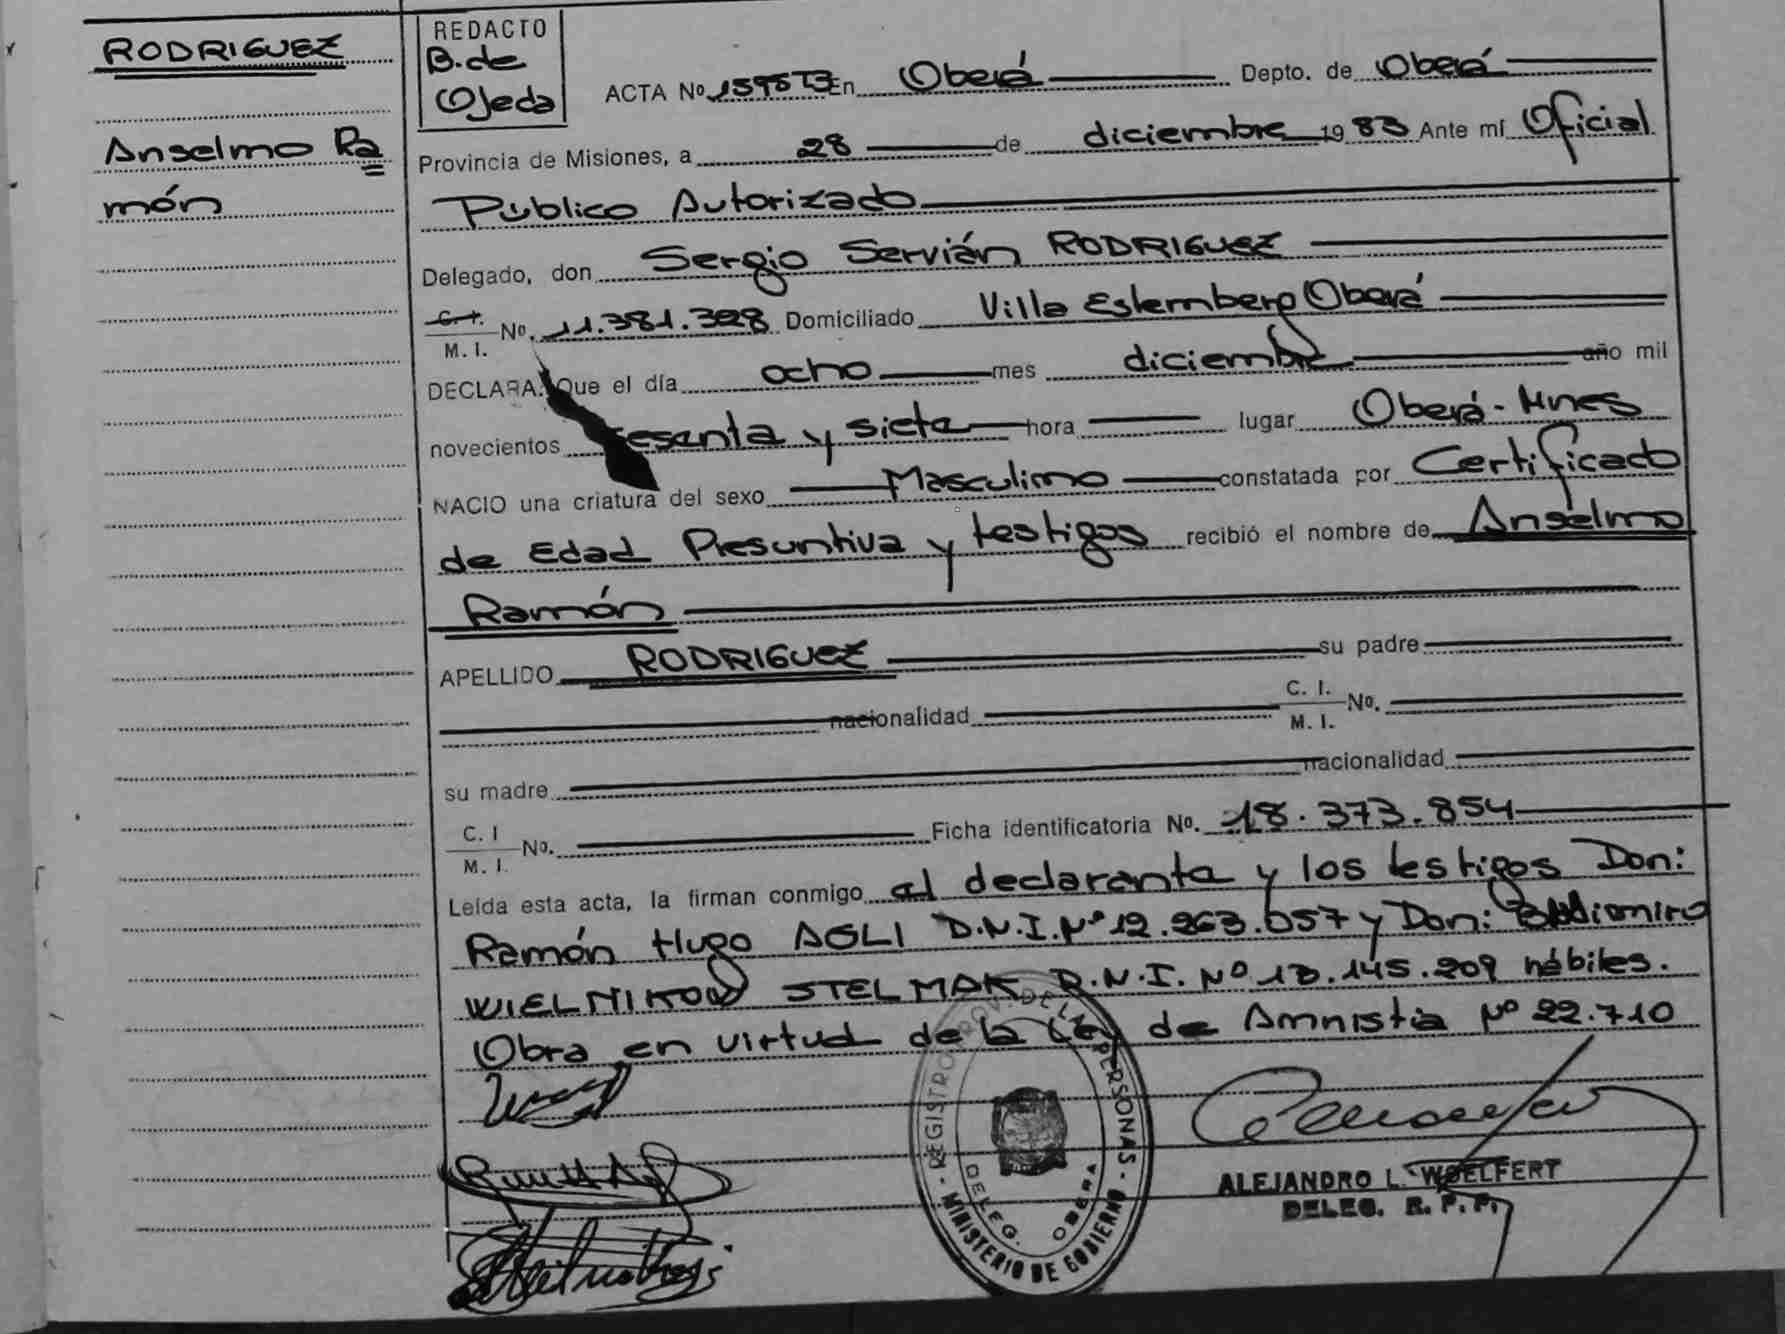 RODRIGUEZ
Anselmo Ra
món
REDACTO
B. de
Ojeda
ACTA No En Oberá Depto. de Oberá
Provincia de Misiones, a 28 de diciembre 1983 Ante mí Oficial
Público Autorizado
Delegado, don Sergio Servián RODRIGUEZ
C. I. M. I. No. 11.381.328 Domiciliado Villa Oberá
DECLARA: Que el día ocho mes diciembre año mil
novecientos sesenta y siete hora lugar Oberá - Mnes
NACIO una criatura del sexo Masculino constatada por Certificado
de Edad Presuntiva y testigos recibió el nombre de Anselmo
Ramón
APELLIDO RODRIGUEZ su padre
nacionalidad C. I. M. I. No.
su madre nacionalidad
C. I M. I. No. Ficha identificatoria No. 18.373.854
Leída esta acta, la firman conmigo el declarante y los testigos Don:
Ramón Hugo AGLI D.N.I. Nº 12.263.057 y Don:
STELMAK D.N.I. Nº 13.145.209 hábiles.
Obra en virtud de la Ley de Amnistia Nº 22.710
REGISTRO PROV. DE LAS PERSONAS
DELEG. OBERA
MINISTERIO DE GOBIERNO
ALEJANDRO L. WOELFERT
DELEG. R. P. P.